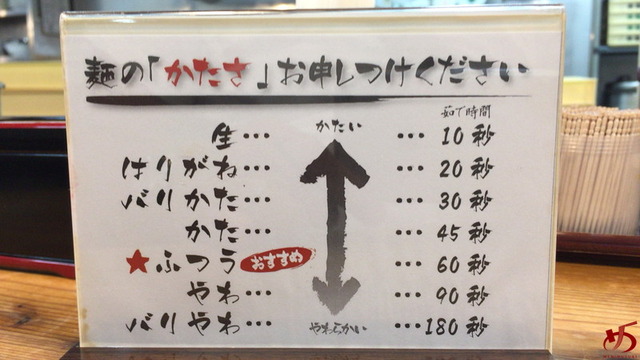 麺の「かたさ」お申しつけください
茹で時間
かたい
生… …10秒
はりがね… …20秒
バリかた… …30秒
かた… …45秒
★ふつう おすすめ …60秒
やわ… …90秒
バリやわ… …180秒
やわらかい